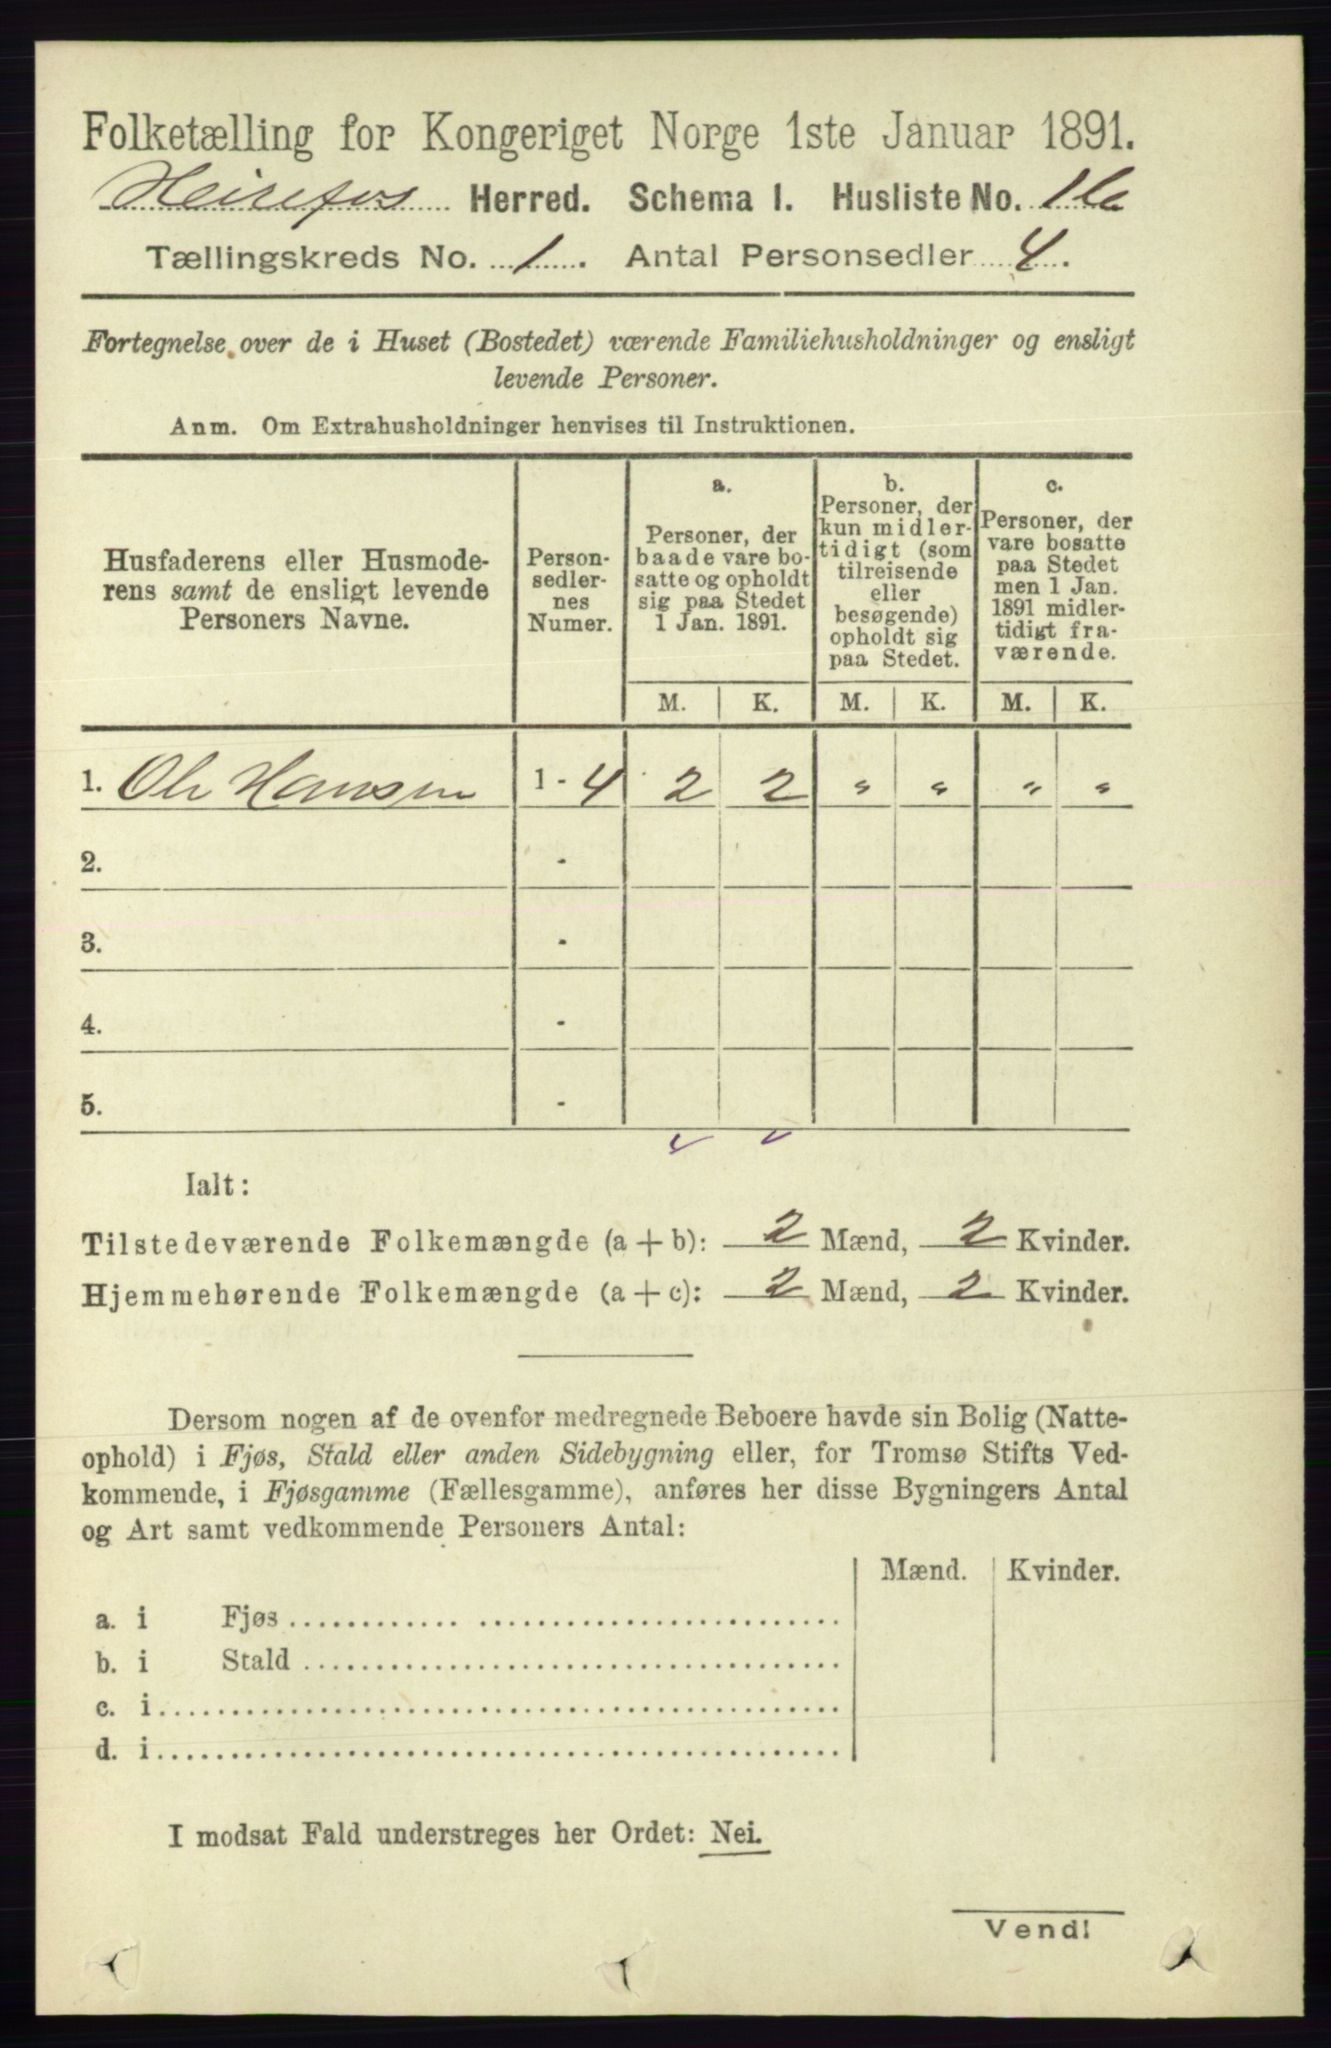 Folketælling for Kongeriget Norge 1ste Januar 1891.
Herred. Schema I. Husliste No. 16
Tællingskreds No. 1. Antal Personsedler 4.
Fortegnelse over de i Huset (Bostedet) værende Familiehusholdninger og ensligt
levende Personer.
Anm. Om Extrahusholdninger henvises til Instruktionen.
Husfaderens eller Husmode-
rens samt de ensligt levende
Personers Navne.
Person-
sedler-
nes
Numer.
a.
Personer, der
baade vare bo-
satte og opholdt
sig paa Stedet
1 Jan. 1891.
b.
Personer, der
kun midler-
tidigt (som
tilreisende
eller
besøgende)
opholdt sig
paa Stedet.
c.
Personer, der
vare bosatte
paa Stedet
men 1 Jan.
1891 midler-
tidigt fra-
værende.
M. K. M. K. M. K.
1. Ole Hansen 1 - 4 2 2 " " " "
2. -
3. -
4. -
5. -
Ialt:
Tilstedeværende Folkemængde (a + b): 2 Mænd, 2 Kvinder.
Hjemmehørende Folkemængde (a + c): 2 Mænd, 2 Kvinder.
Dersom nogen af de ovenfor medregnede Beboere havde sin Bolig (Natte-
ophold) i Fjøs, Stald eller anden Sidebygning eller, for Tromsø Stifts Ved-
kommende, i Fjøsgamme (Fællesgamme), anføres her disse Bygningers Antal
og Art samt vedkommende Personers Antal:
Mænd. Kvinder.
a. i Fjøs
b. i Stald
c. i
d. i
I modsat Fald understreges her Ordet: Nei.
Vend!